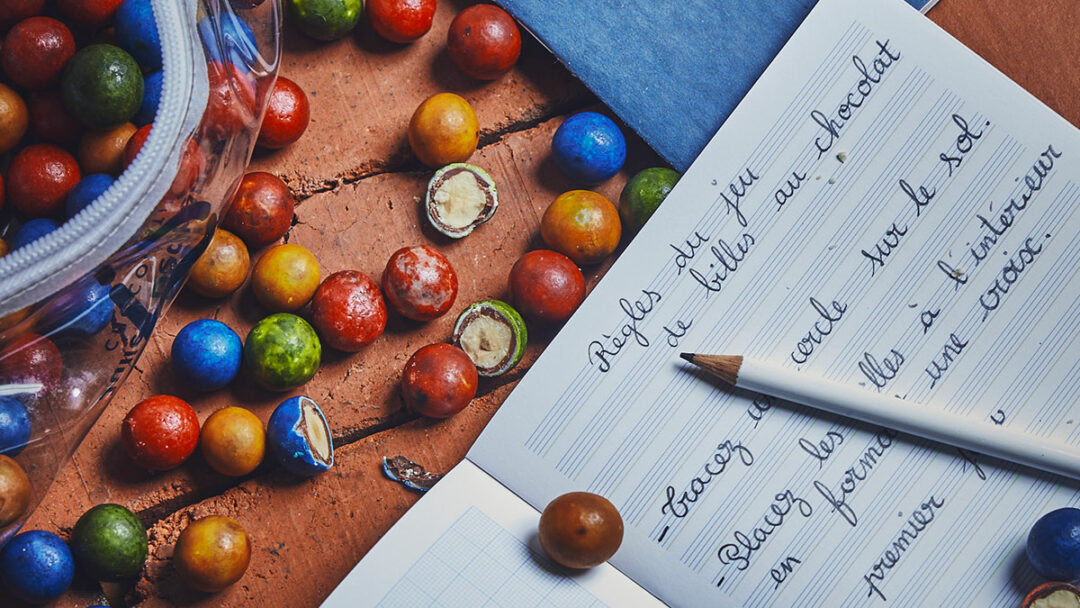 Règles du jeu
de billes au chocolat
- Tracez cercle sur le sol.
- Placez les billes à l'intérieur
en formant une croix.
premier